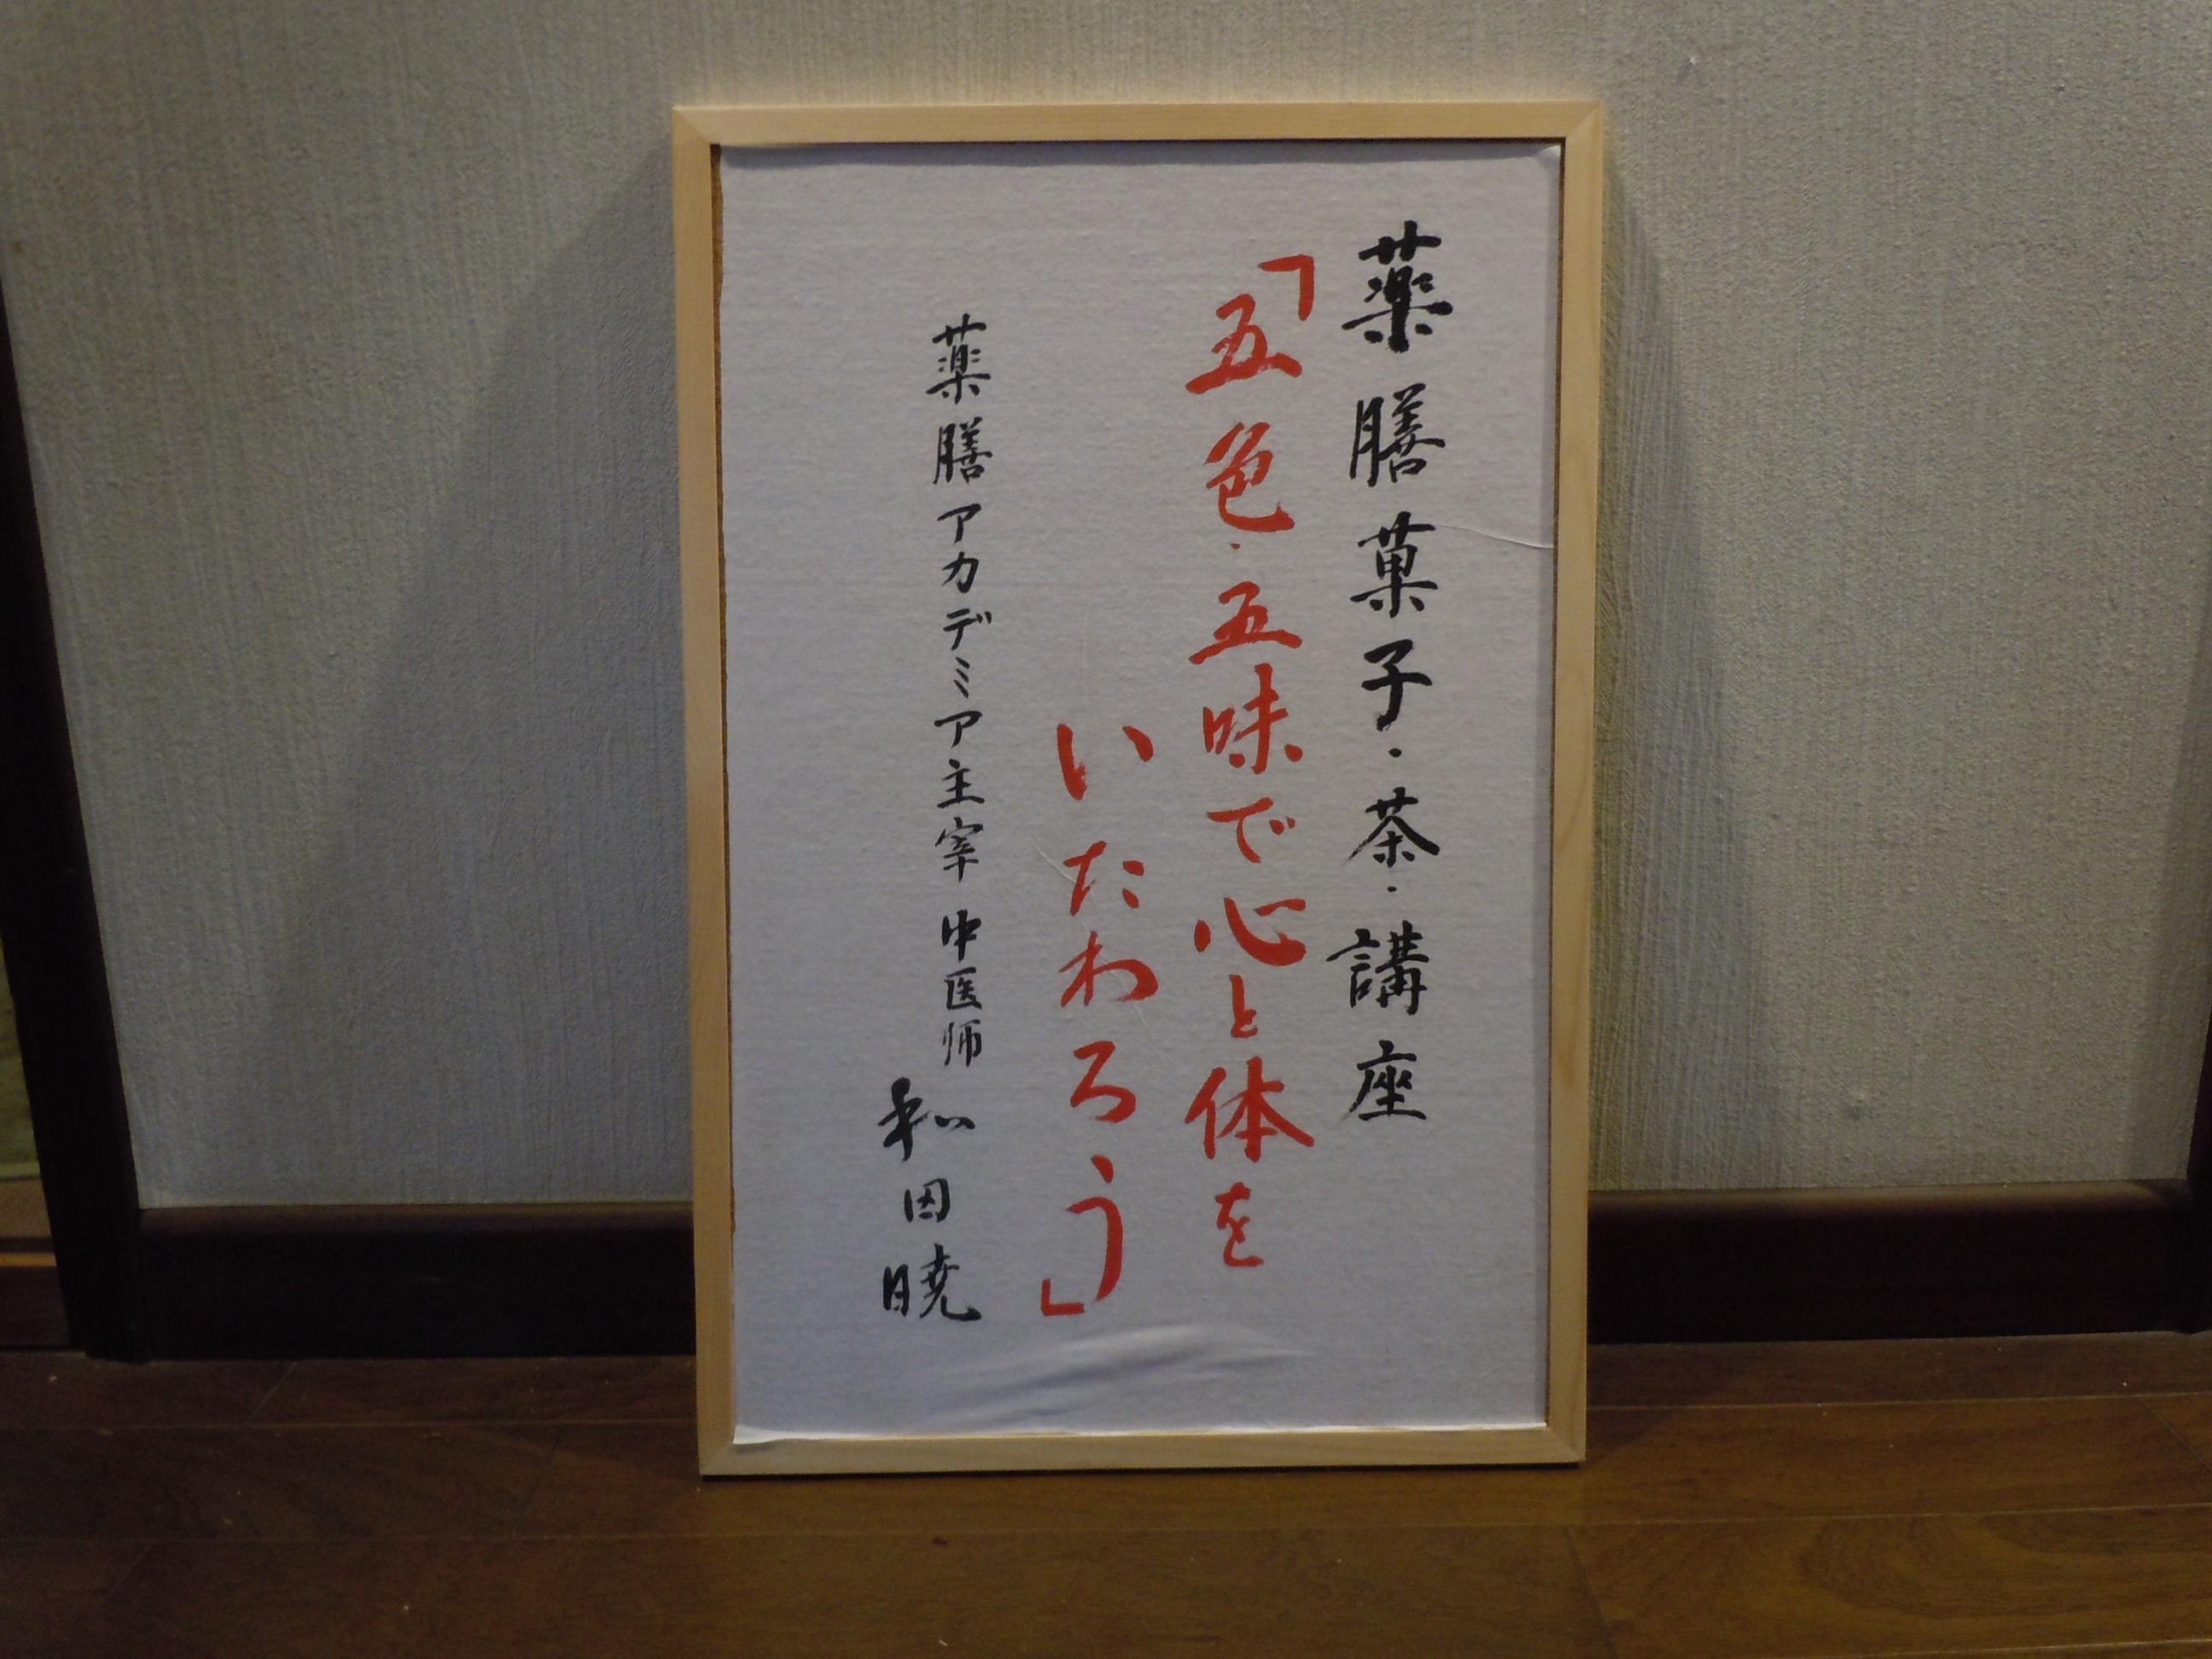 薬膳菓子・茶・講座
「五色・五味で心と体を
いたわろう」
薬膳アカデミア主宰 中医师
和田暁